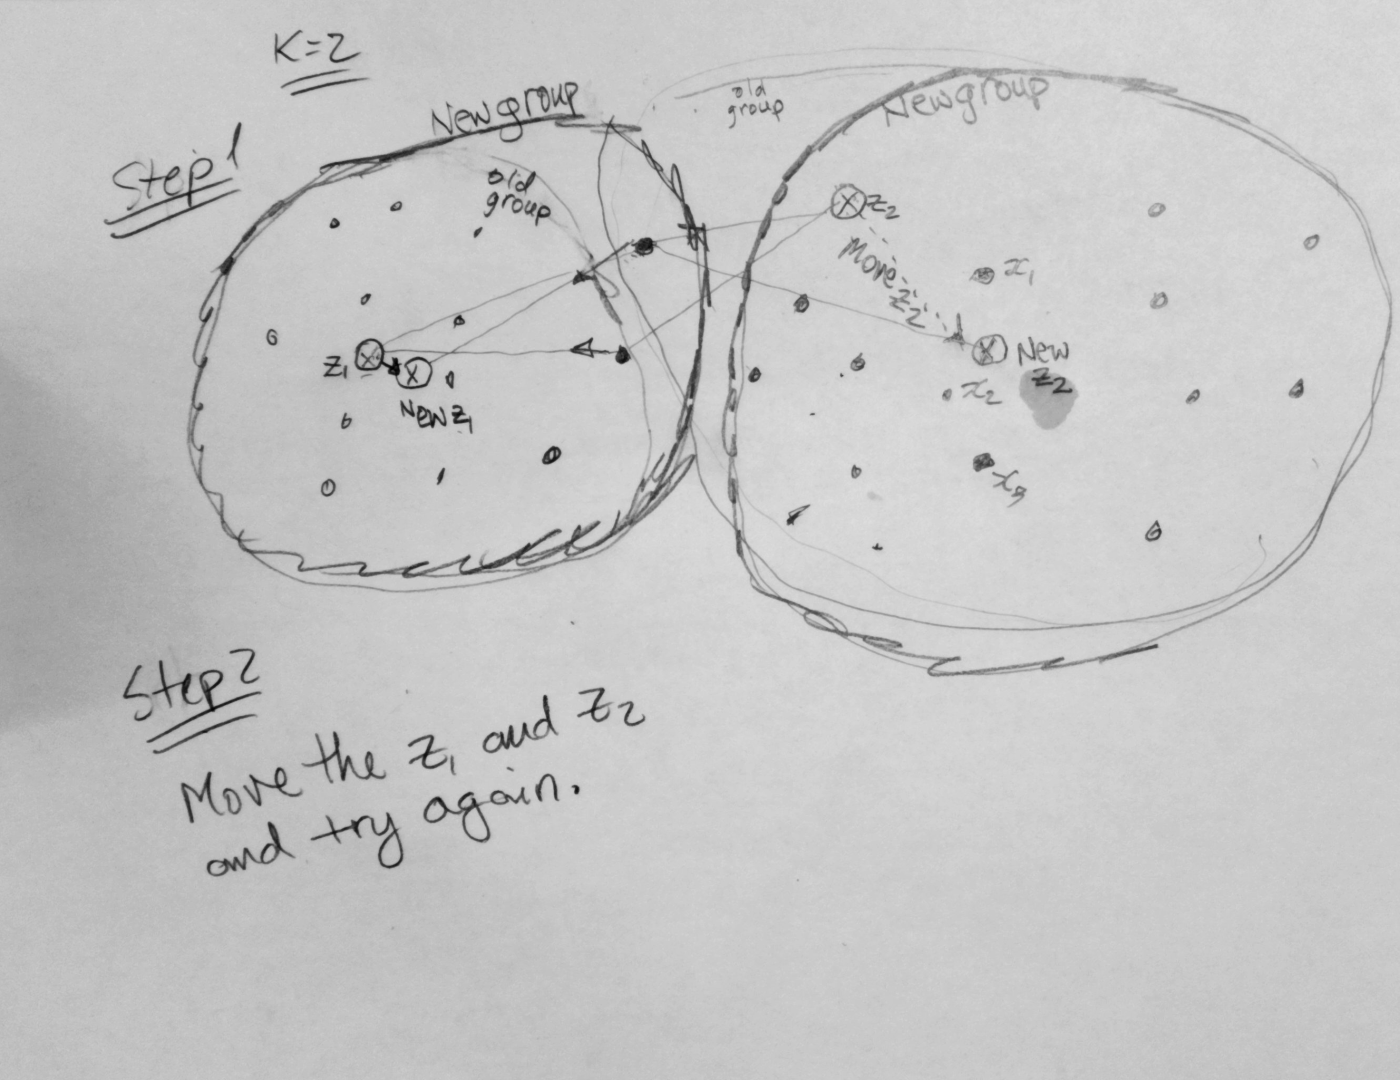 K=2
Step 1
New group
old
group
old
group
New group
z₂
Move
z₂
x₁
z₁
New z₁
New
z₂
x₂
Step 2
Move the z₁ and z₂
and try again.